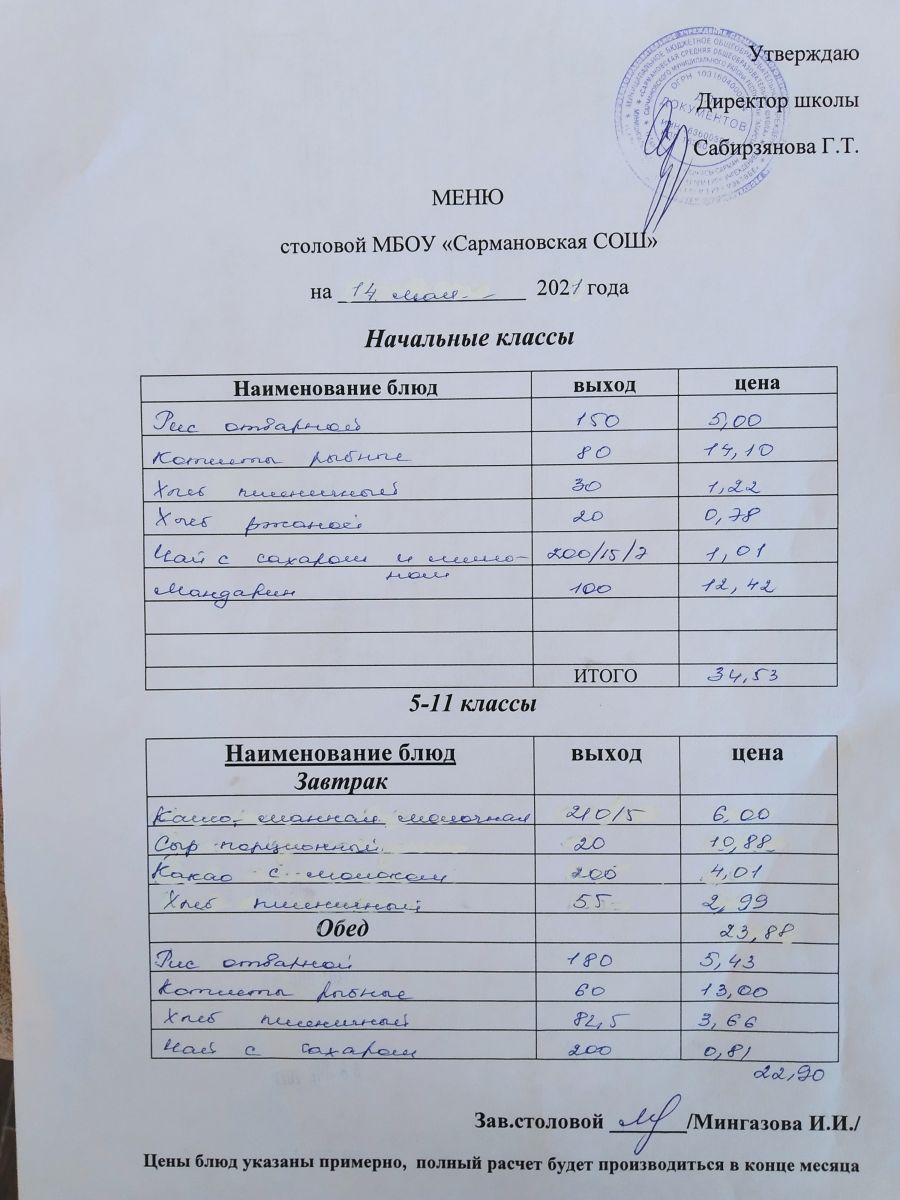 Утверждаю
Директор школы
Сабирзянова Г.Т.
ДОКУМЕНТОВ
МЕНЮ
столовой МБОУ «Сармановская СОШ»
на 14 мая 2021 года
Начальные классы
Наименование блюд выход цена
Рис отварной 150 5,00
Котлеты рыбные 80 14,10
Хлеб пшеничный 30 1,22
Хлеб ржаной 20 0,78
Чай с сахаром и лимо- 200/15/7 1,01
ном
Мандарин 100 12,42
ИТОГО 34,53
5-11 классы
Наименование блюд выход цена
Завтрак
Каша манная молочная 210/5 6,00
Сыр порционный 20 10,88
Какао с молоком 200 4,01
Хлеб пшеничный 55 2,99
Обед 23,88
Рис отварной 180 5,43
Котлеты рыбные 60 13,00
Хлеб пшеничный 82,5 3,66
Чай с сахаром 200 0,81
22,90
Зав.столовой /Мингазова И.И./
Цены блюд указаны примерно, полный расчет будет производиться в конце месяца